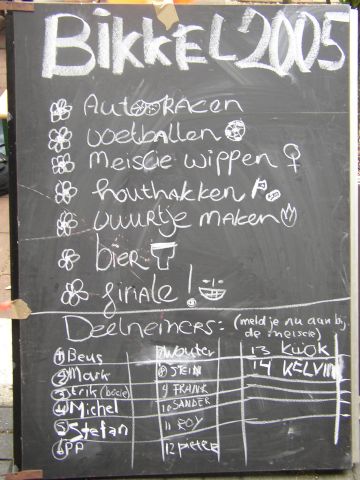 BIKKEL 2005
Autoracen
voetballen
Meisje wippen
houthakken
vuurtje maken
bier
finale!
Deelnemers: (meld je nu aan bij
de meisjes)
1 Beus 7 Wouter 13 KWOK
2 Mark 8 STEIN 14 KELVIN
3 Erik (beele) 9 FRANK
4 Michel 10 SANDER
5 Stefan 11 ROY
6 PP 12 pieter